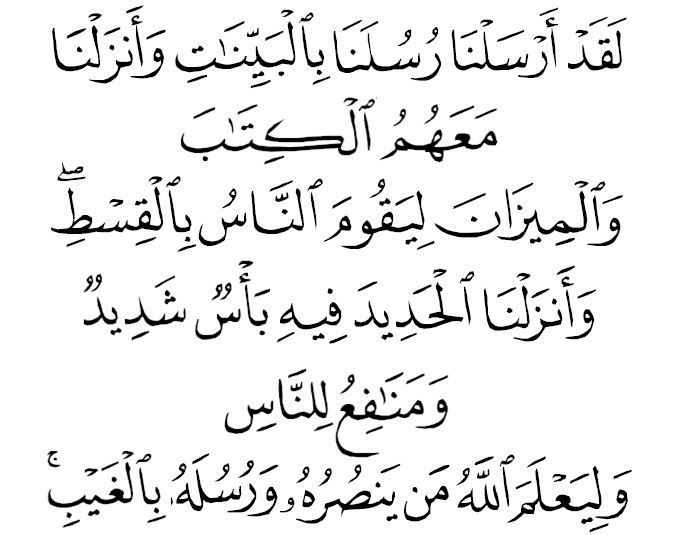 لَقَدۡ أَرۡسَلۡنَا رُسُلَنَا بِٱلۡبَيِّنَٰتِ وَأَنزَلۡنَا
مَعَهُمُ ٱلۡكِتَٰبَ
وَٱلۡمِيزَانَ لِيَقُومَ ٱلنَّاسُ بِٱلۡقِسۡطِۖ
وَأَنزَلۡنَا ٱلۡحَدِيدَ فِيهِ بَأۡسٞ شَدِيدٞ
وَمَنَٰفِعُ لِلنَّاسِ
وَلِيَعۡلَمَ ٱللَّهُ مَن يَنصُرُهُۥ وَرُسُلَهُۥ بِٱلۡغَيۡبِۚ